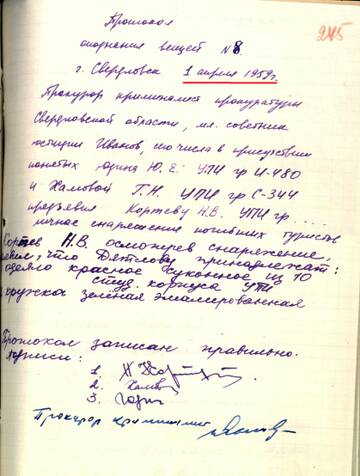 245
Протокол
опознания вещей №8
г. Свердловск 1 апреля 1959г.
Прокурор криминалист прокуратуры
Свердловской области, мл. советник
юстиции Иванов, сего числа в присутствии
понятых Юдина Ю.Е. УПИ гр И-480
и Хамовой Г.Н. УПИ гр С-344
предъявил Кортеву Н.В. УПИ гр ....
личное снаряжение погибших туристов
Кортев Н.В. осмотрев снаряжение,
что Дятлову принадлежат:
одеяло красное суконное из 10
студ. корпуса УПИ
кружка зеленая эмалированная
Протокол записан правильно.
Подписи:
1.
2. Хамова
3. Юдин
Прокурор криминалист